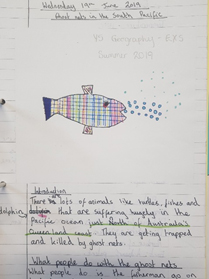 Wednesday 19th June 2019
Ghost nets in the South Pacific
Y5 Geography
Summer 2019
Introduction
There is lots of animals like turtles, fishes and
dolphins that are suffering hugely in the
Pacific ocean just North of Australia's
Queensland coast. They are getting trapped
and killed by ghost nets.
What people do with the ghost nets
What people do is the fisherman go on